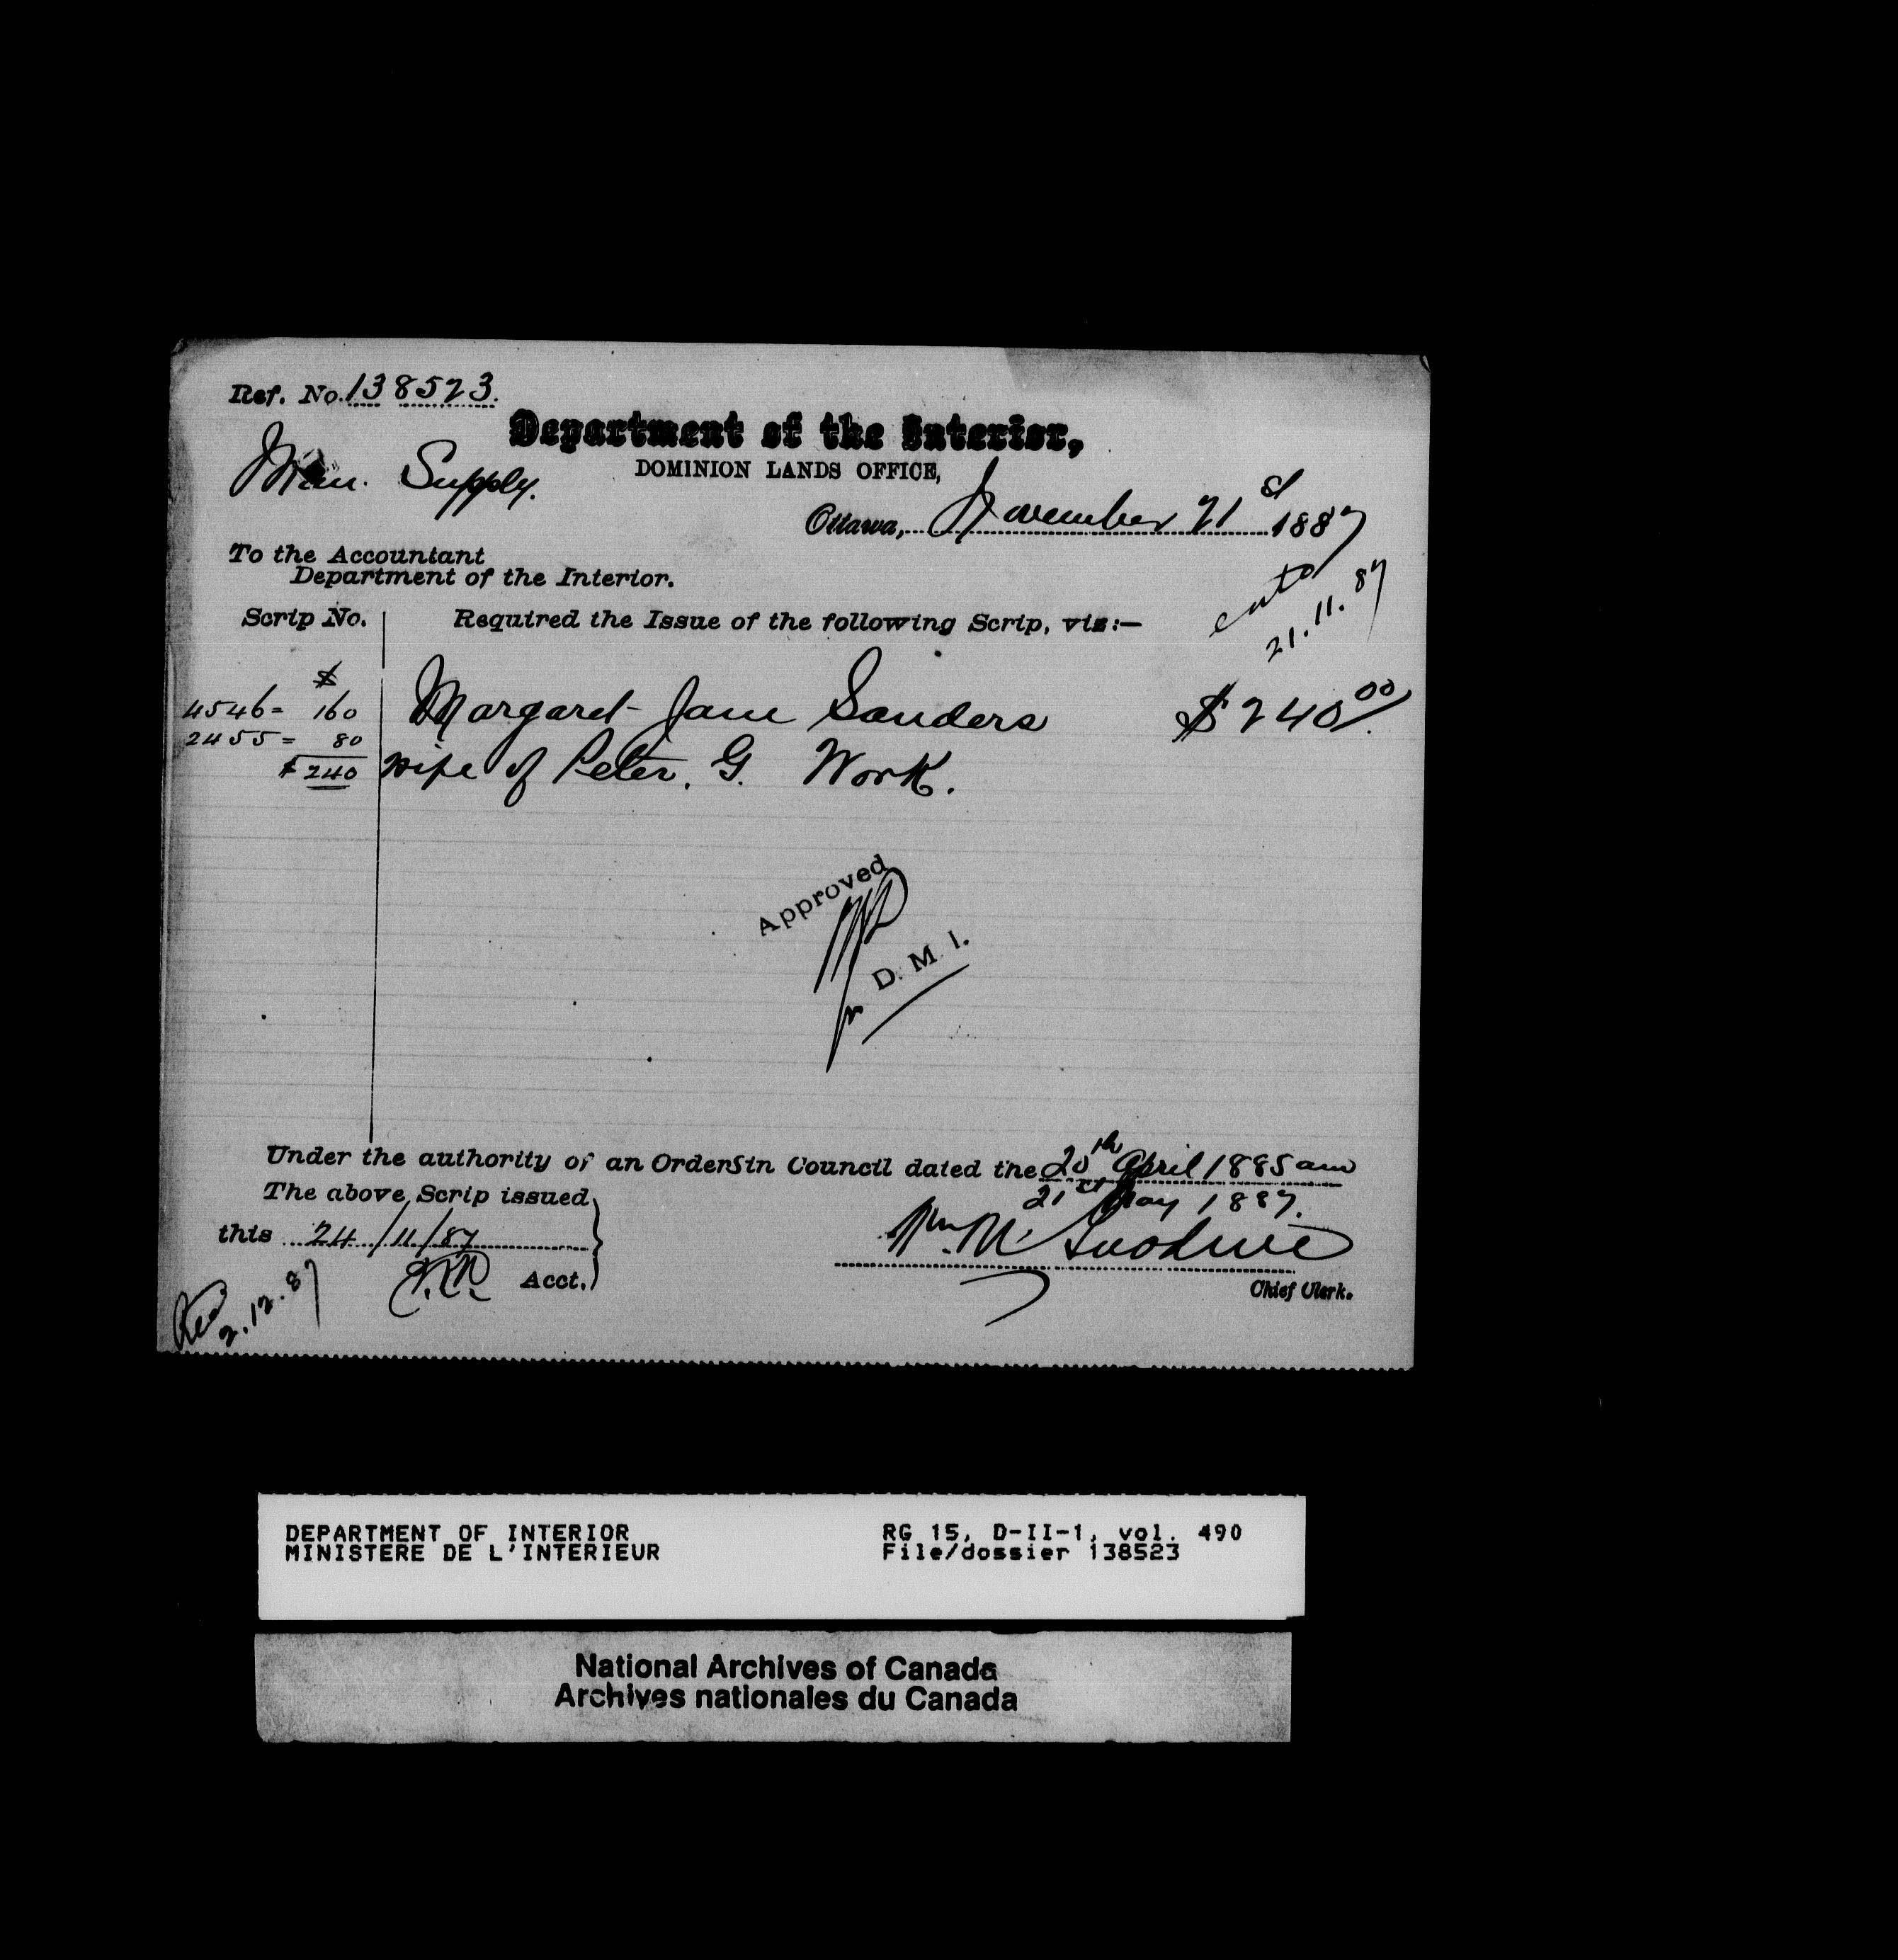 Ref. No. 138523.
Man. Supply.
Department of the Interior,
DOMINION LANDS OFFICE,
Ottawa, November 21st 1887
To the Accountant
Department of the Interior.
entd
21.11.87
Scrip No. Required the Issue of the following Scrip, viz:—
$
4546 = 160 Margaret Jane Sanders $240.00
2455 = 80
$240 wife of Peter. G. Work.
Approved
for D. M. I.
Under the authority of an Orders in Council dated the 20th April 1885 and
21st May 1887.
The above Scrip issued
this 24/11/87
Acct.
Wm M Goodeve
Chief Clerk.
2.12.87
DEPARTMENT OF INTERIOR
MINISTERE DE L'INTERIEUR
RG 15, D-II-1, vol. 490
File/dossier 138523
National Archives of Canada
Archives nationales du Canada